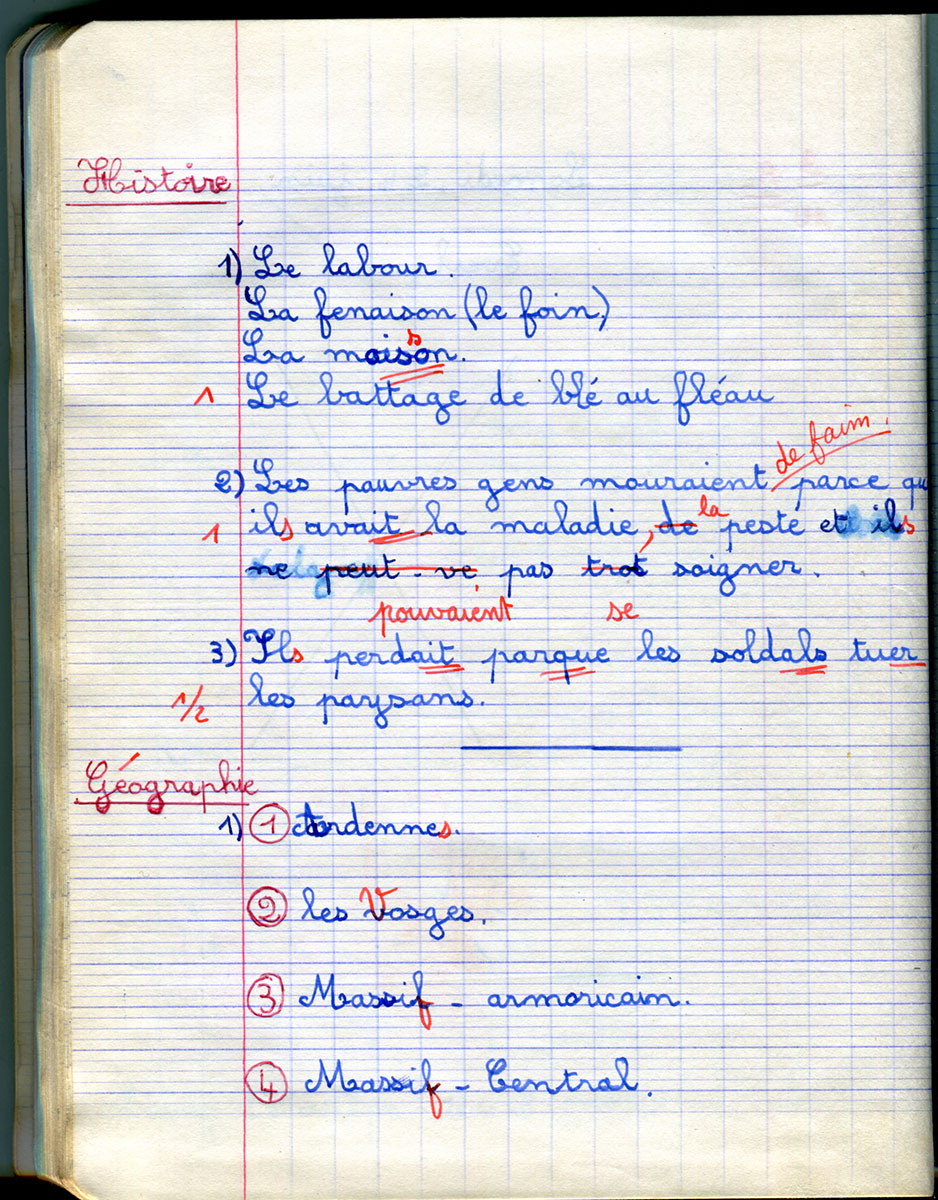 Histoire
1) Le labour.
La fenaison (le foin)
s
La moison.
1 Le battage de blé au fléau
de faim.
2) Les pauvres gens mouraient parce qu
la
1 ils avait la maladie de peste et ils
ne peut-ve pas trot soigner.
pouvaient se
3) Ils perdait parque les soldals tuer
1/2 les paysans.
Géographie
1) 1 Ardennes.
2 les Vosges.
3 Massif - armoricain.
4 Massif - Central.